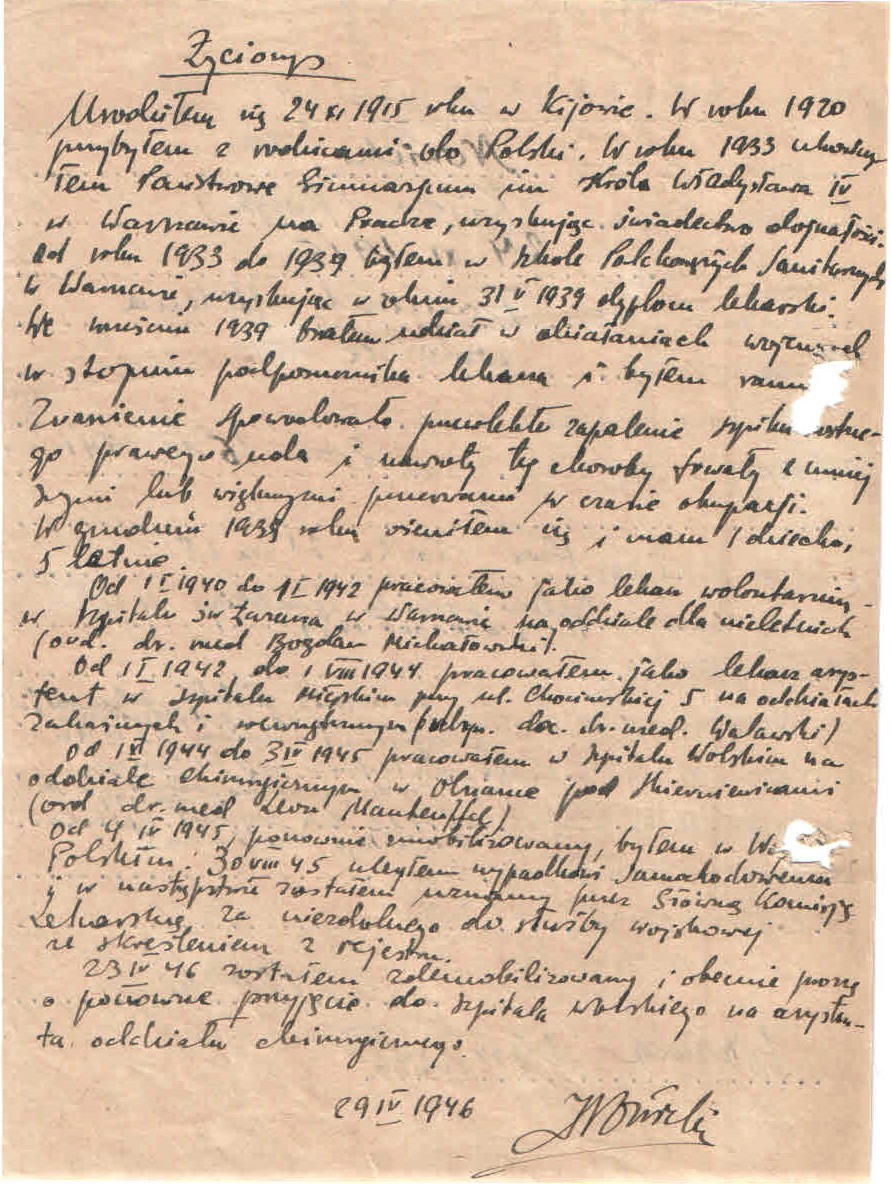 Życiorys
Urodziłem się 24 XI 1915 roku w Kijowie. W roku 1920
przybyłem z rodzicami do Polski. W roku 1933 ukończy
łem Państwowe Gimnazjum im Króla Władysława IV
w Warszawie na Pradze, uzyskując świadectwo dojrzałości.
Od roku 1933 do 1939 byłem w Szkole Podchorążych Sanitarnych
w Warszawie, uzyskując w dniu 31 V 1939 dyplom lekarski.
We wrześniu 1939 brałem udział w działaniach wojennych
w stopniu podporucznika lekarza i byłem
Zranienie spowodowało przewlekłe zapalenie szpiku
go prawego uda i nawroty tej choroby trwały z mniej
szymi lub większymi przerwami w czasie okupacji.
W grudniu 1939 roku ożeniłem się i mam 1 dziecko,
5 letnie.
Od 1 I 1940 do 1 I 1942 pracowałem jako lekarz wolontariusz
w szpitalu św Łazarza w Warszawie na oddziale dla nieletnich
(ord. dr. med Bogdan Michałowski).
Od 1 I 1942 do 1 VIII 1944 pracowałem jako lekarz asys-
tent w szpitalu Miejskim przy ul. Chocimskiej 5 na oddziałach
zakaźnych i wewnętrznym ( doc. dr. med. Walawski)
Od 1 1944 do 3 IV 1945 pracowałem w szpitalu Wolskim na
oddziale chirurgicznym w Olszance pod Skierniewicami
(ord dr. med Leon Manteuffel)
Od 4 IV 1945, ponownie zmobilizowany, byłem w
Polskim. 30 VIII 45 uległem wypadkowi samochodowemu
i w następstwie zostałem uznany przez Główną Komisję
Lekarską za niezdolnego do służby wojskowej
ze skreśleniem z rejestru.
23 IV 46 zostałem zdemobilizowany i obecnie proszę
o ponowne przyjęcie do szpitala Wolskiego na asysten-
ta oddziału chirurgicznego.
29 IV 1946